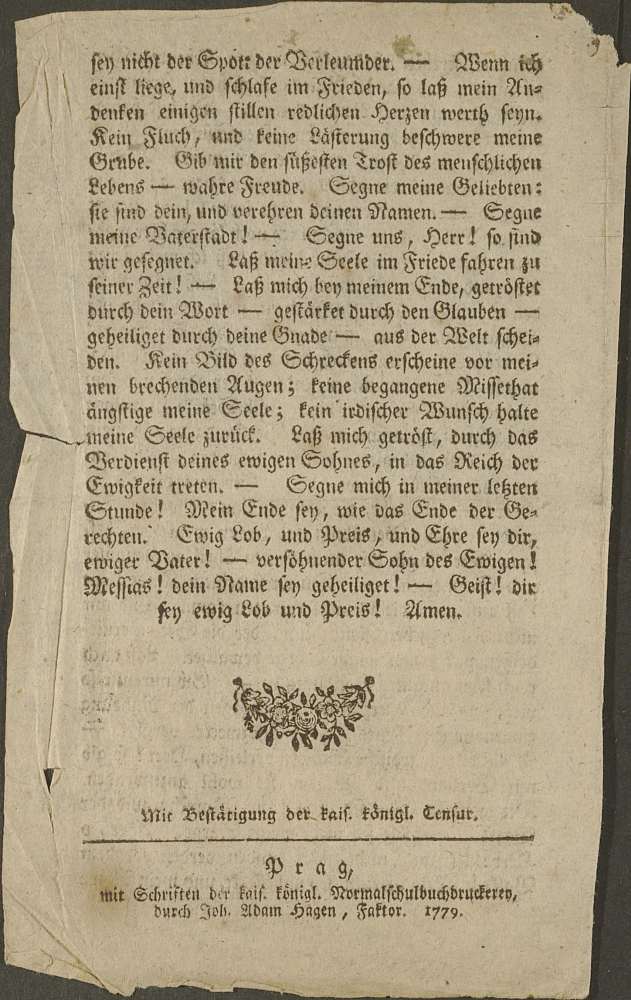 sey nicht der Spott der Verleumder. — Wenn ich
einst liege, und schlafe im Frieden, so laß mein An⸗
denken einigen stillen redlichen Herzen werth seyn.
Kein Fluch, und keine Lästerung beschwere meine
Grube. Gib mir den süßesten Trost des menschlichen
Lebens — wahre Freude. Segne meine Geliebten:
sie sind dein, und verehren deinen Namen. — Segne
meine Vaterstadt! — Segne uns, Herr! so sind
wir gesegnet. Laß meine Seele im Friede fahren zu
seiner Zeit! — Laß mich bey meinem Ende, getröstet
durch dein Wort — gestärket durch den Glauben —
geheiliget durch deine Gnade — aus der Welt schei⸗
den. Kein Bild des Schreckens erscheine vor mei⸗
nen brechenden Augen; keine begangene Missethat
ängstige meine Seele; kein irdischer Wunsch halte
meine Seele zurück. Laß mich getröst, durch das
Verdienst deines ewigen Sohnes, in das Reich der
Ewigkeit treten. — Segne mich in meiner letzten
Stunde! Mein Ende sey, wie das Ende der Ge⸗
rechten. Ewig Lob, und Preis, und Ehre sey dir,
ewiger Vater! — versöhnender Sohn des Ewigen!
Messias! dein Name sey geheiliget! — Geist! dir
sey ewig Lob und Preis! Amen.
Mit Bestätigung der kais. königl. Censur.
Prag,
mit Schriften der kais. königl. Normalschulbuchdruckerey,
durch Joh. Adam Hagen, Faktor. 1779.